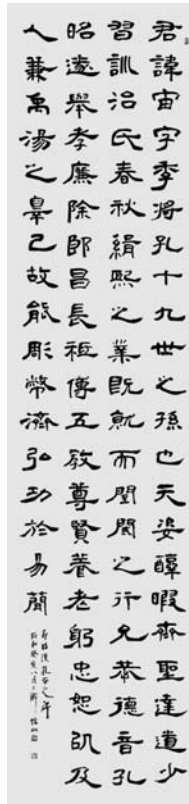 君諱宙字季將孔十九世之孫也天姿醇嘏齊聖達道少
習訓治氏春秋緝熙之業既就而閨閾之行允恭德音孔
昭遂舉孝廉除郎昌長祗傅五教尊賢養老躬忠恕㠯及
人兼禹湯之辠己故能彫幣濟弘功於易簡